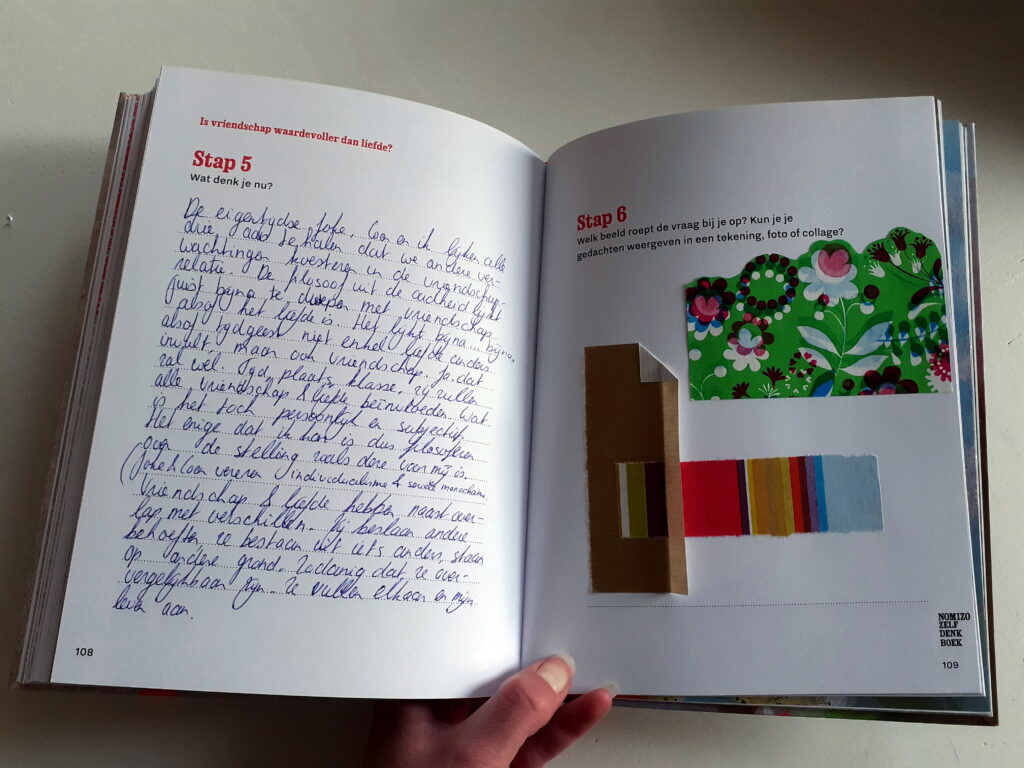 Is vriendschap waardevoller dan liefde?
Stap 5
Wat denk je nu?
De eigentijdse Joke, Coen en ik lijken alle
drie aan te halen dat we andere ver-
wachtingen investeren in de vriendschap-
relatie. De filosoof uit de oudheid lijkt
juist bijna te dwepen met vriendschap
alsof het liefde is. Het lijkt bijna... bijna,
alsof tijdgeest niet enkel liefde anders
invult maar ook vriendschap. Ja, dat
zal wél. Tijd, plaats, klasse. Zij zullen
alle vriendschap & liefde beïnvloeden. Wat
is het toch persoonlijk en subjectief.
Het enige dat ik kan is dus filosoferen
over de stelling zoals deze voor mij is.
(Joke & Coen individualisme &
Vriendschap & liefde hebben, naast over-
lap, met verschillen. Zij beslaan andere
behoeften, ze bestaan uit iets anders, staan
op andere grond. Zodanig dat ze on-
vergelijkbaar zijn. Ze vullen elkaar en mijn
leven aan.
108
Stap 6
Welk beeld roept de vraag bij je op? Kun je je
gedachten weergeven in een tekening, foto of collage?
NOMIZO
ZELF
DENK
BOEK
109